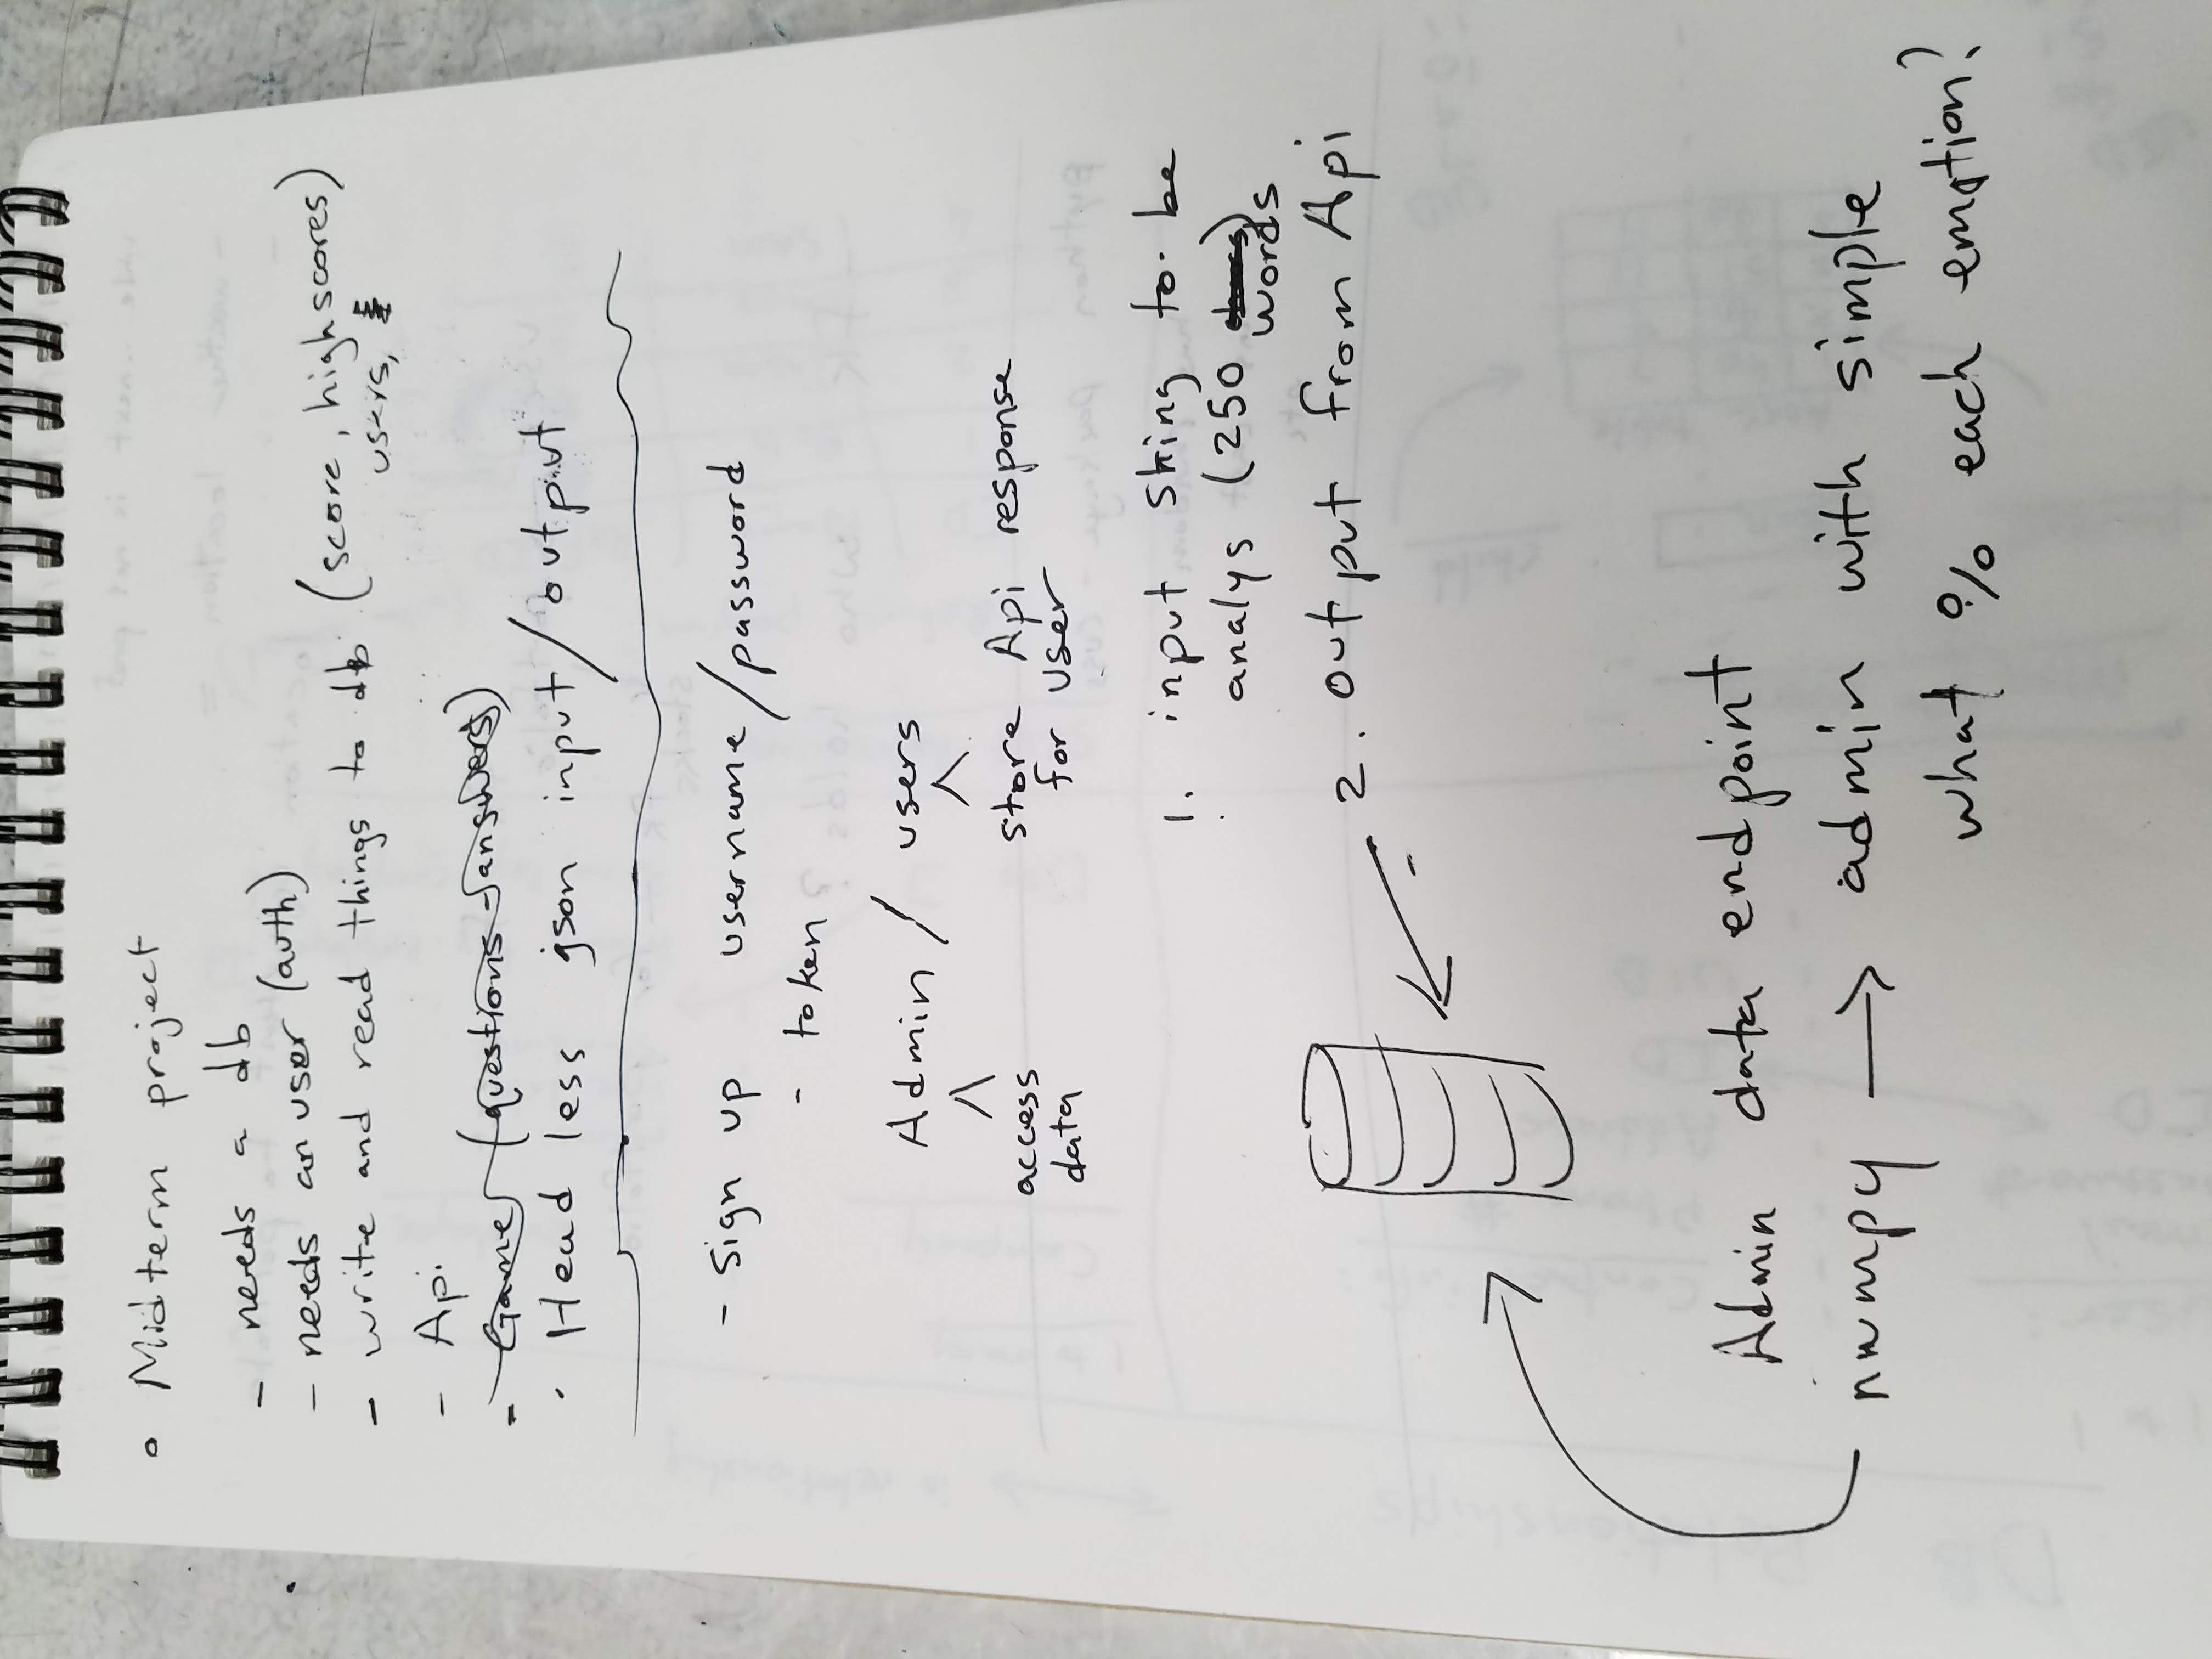 ◦ Midterm project
- needs a db
- needs an user (auth)
- write and read things to db (score, highscores)
users,
- Api
- Game (questions - answers)
· Head less json input/output
- sign up username/password
- token
Admin / users
access data
store Api response
for user
1. input string to be
analys (250 chars)
words
2. output from Api
Admin data endpoint
numpy → admin with simple
what % each emotion?